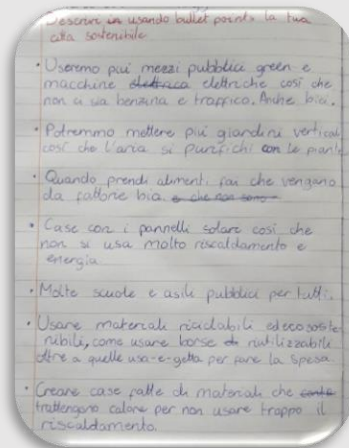 Descrivi in usando bullet points la tua
città sostenibile
• Useremo pui mezzi pubblici green e
macchine elettrica elettriche così che
non si usa benzina e traffico. Anche bici.
• Potremmo mettere più giardini verticali
così che l'aria si purifichi con le piante
• Quando prendi alimenti fai che vengano
da fattorie bia e che non sono
• Case con i pannelli solare così che
non si usa molto riscaldamento e
energia
• Molte scuole e asili pubblici per tutti.
• Usare materiali riciclabili ed ecososte-
nibili, come usare borse di riutilizzabili
oltre a quelle usa-e-getta per fare la spesa.
• Creare case fatte di materiali che
trattengono calore per non usare troppo il
riscaldamento.